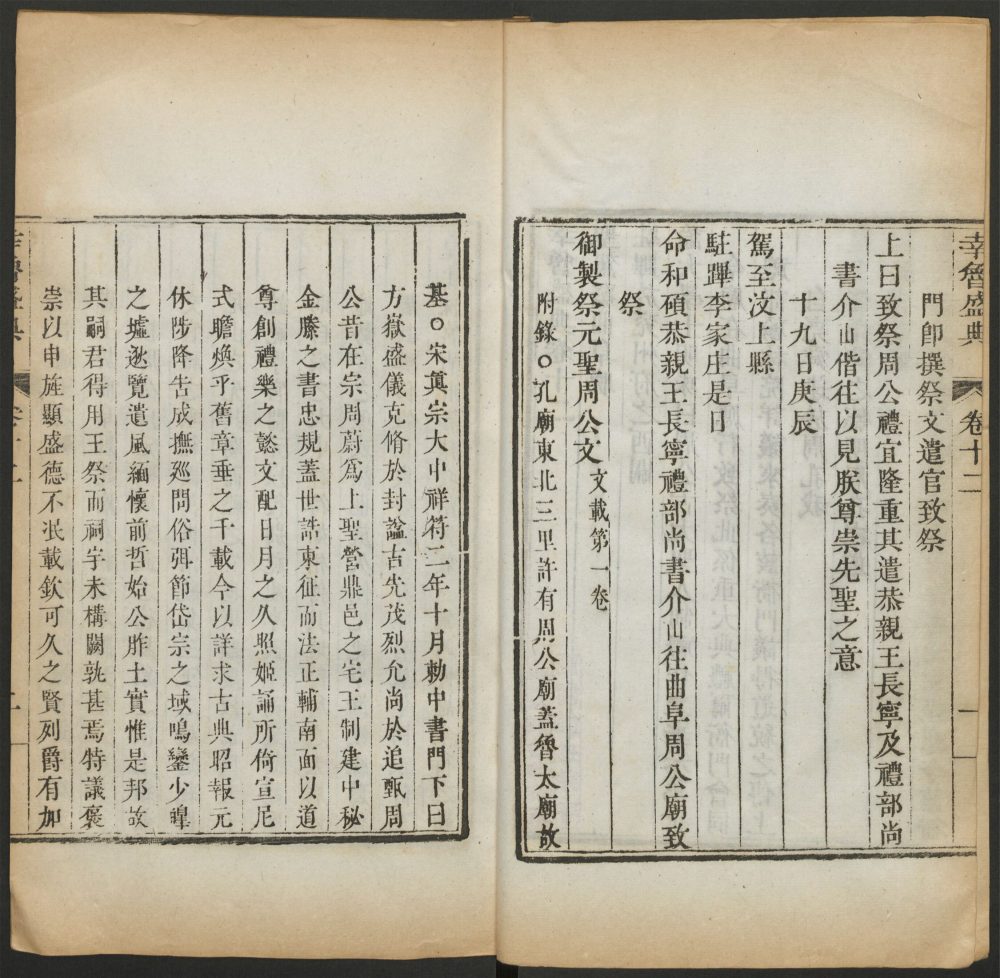 幸魯盛典 卷十二
門即撰祭文遣官致祭
上曰致祭周公禮宜隆重其遣恭親王長寧及禮部尚
書介山偕往以見朕尊崇先聖之意
十九日庚辰
駕至汶上縣
駐蹕李家庄是日
命和碩恭親王長寧禮部尚書介山往曲阜周公廟致
祭
御製祭元聖周公文 文載第一卷
附錄○孔廟東北三里許有周公廟蓋魯太廟故
基○宋眞宗大中祥符二年十月勅中書門下曰
方嶽盛儀克脩於封諡古先茂烈允尚於追甄周
公昔在宗周蔚爲上聖營鼎邑之宅王制建中秘
金縢之書忠規蓋世誥東征而法正輔南面以道
尊創禮樂之懿文配日月之久照姬誦所倚宣尼
式瞻煥乎舊章垂之千載今以詳求古典昭報元
休陟降告成撫廵問俗弭節岱宗之域鳴鑾少皥
之墟逖覽遺風緬懷前哲始公胙土實惟是邦故
其嗣君得用王祭而祠宇未構闕孰甚焉特議褒
崇以申旌顯盛德不泯載欽可久之賢列爵有加